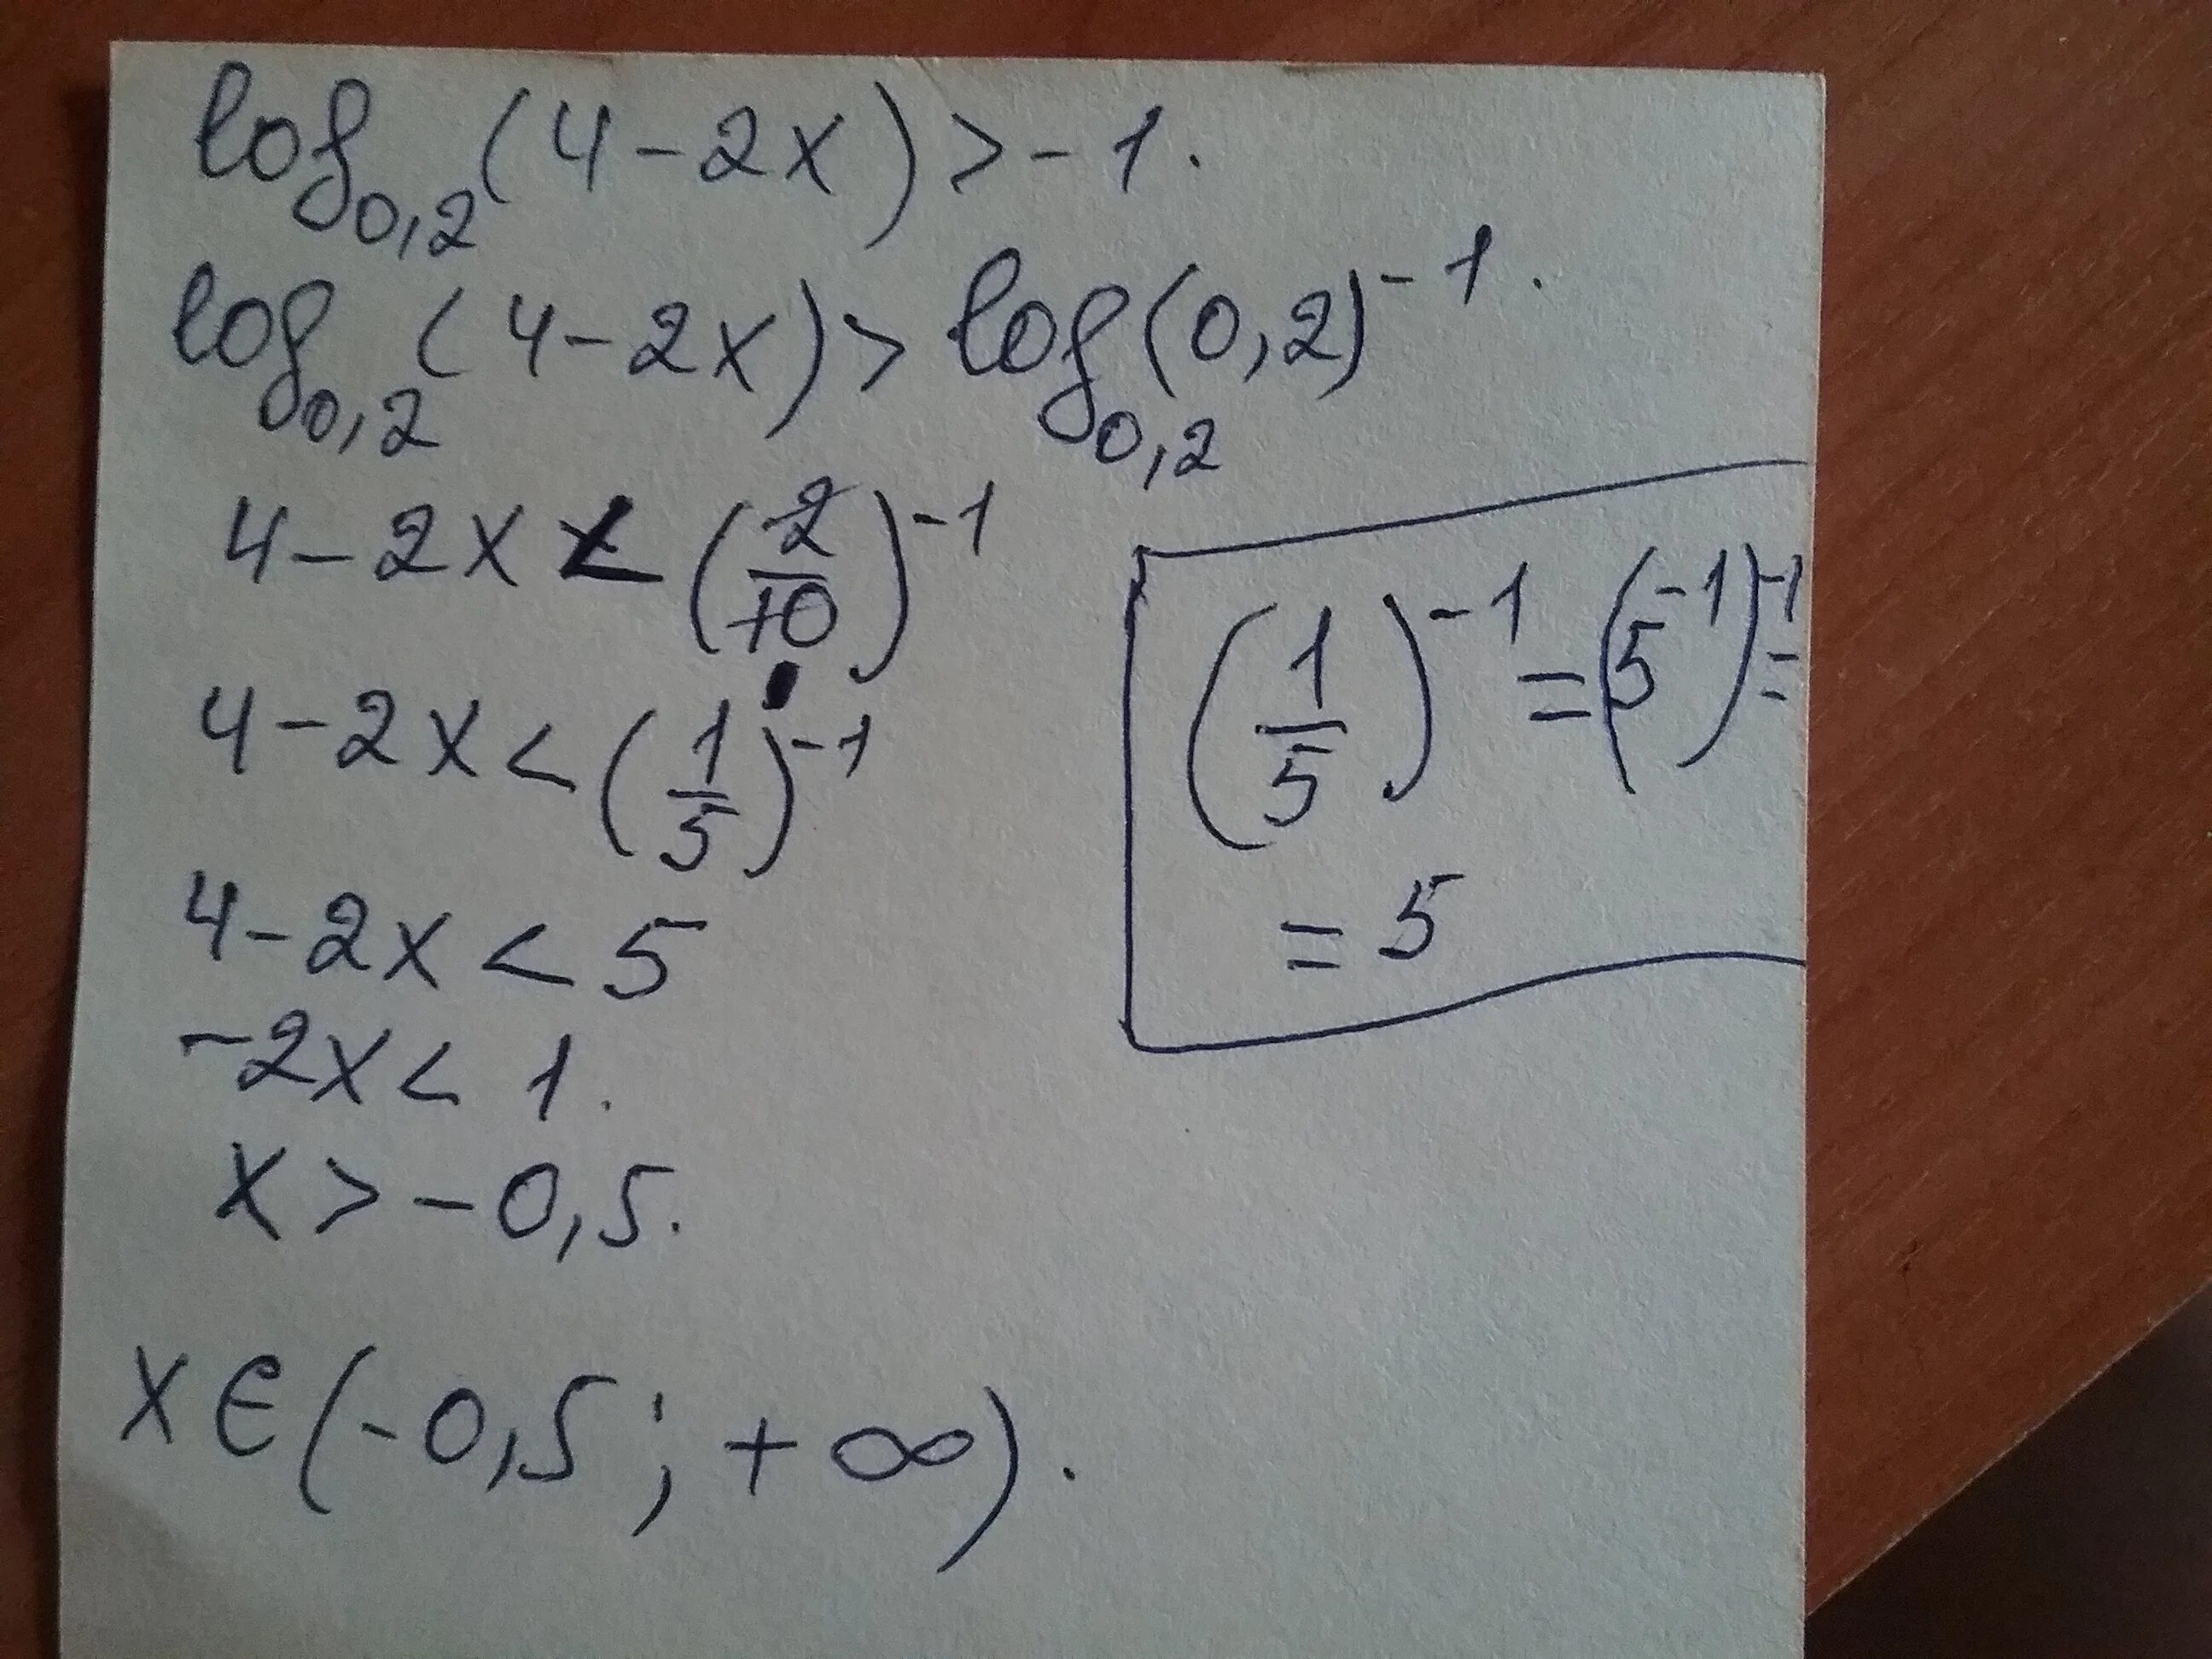 log₀,₂(4-2x)>-1.
log₀,₂(4-2x)>log₀,₂(0,2)⁻¹.
4-2x<(2/10)⁻¹
4-2x<(1/5)⁻¹
4-2x<5
-2x<1.
x>-0,5.
x∈(-0,5;+∞).
(1/5)⁻¹=(5⁻¹)⁻¹=
=5